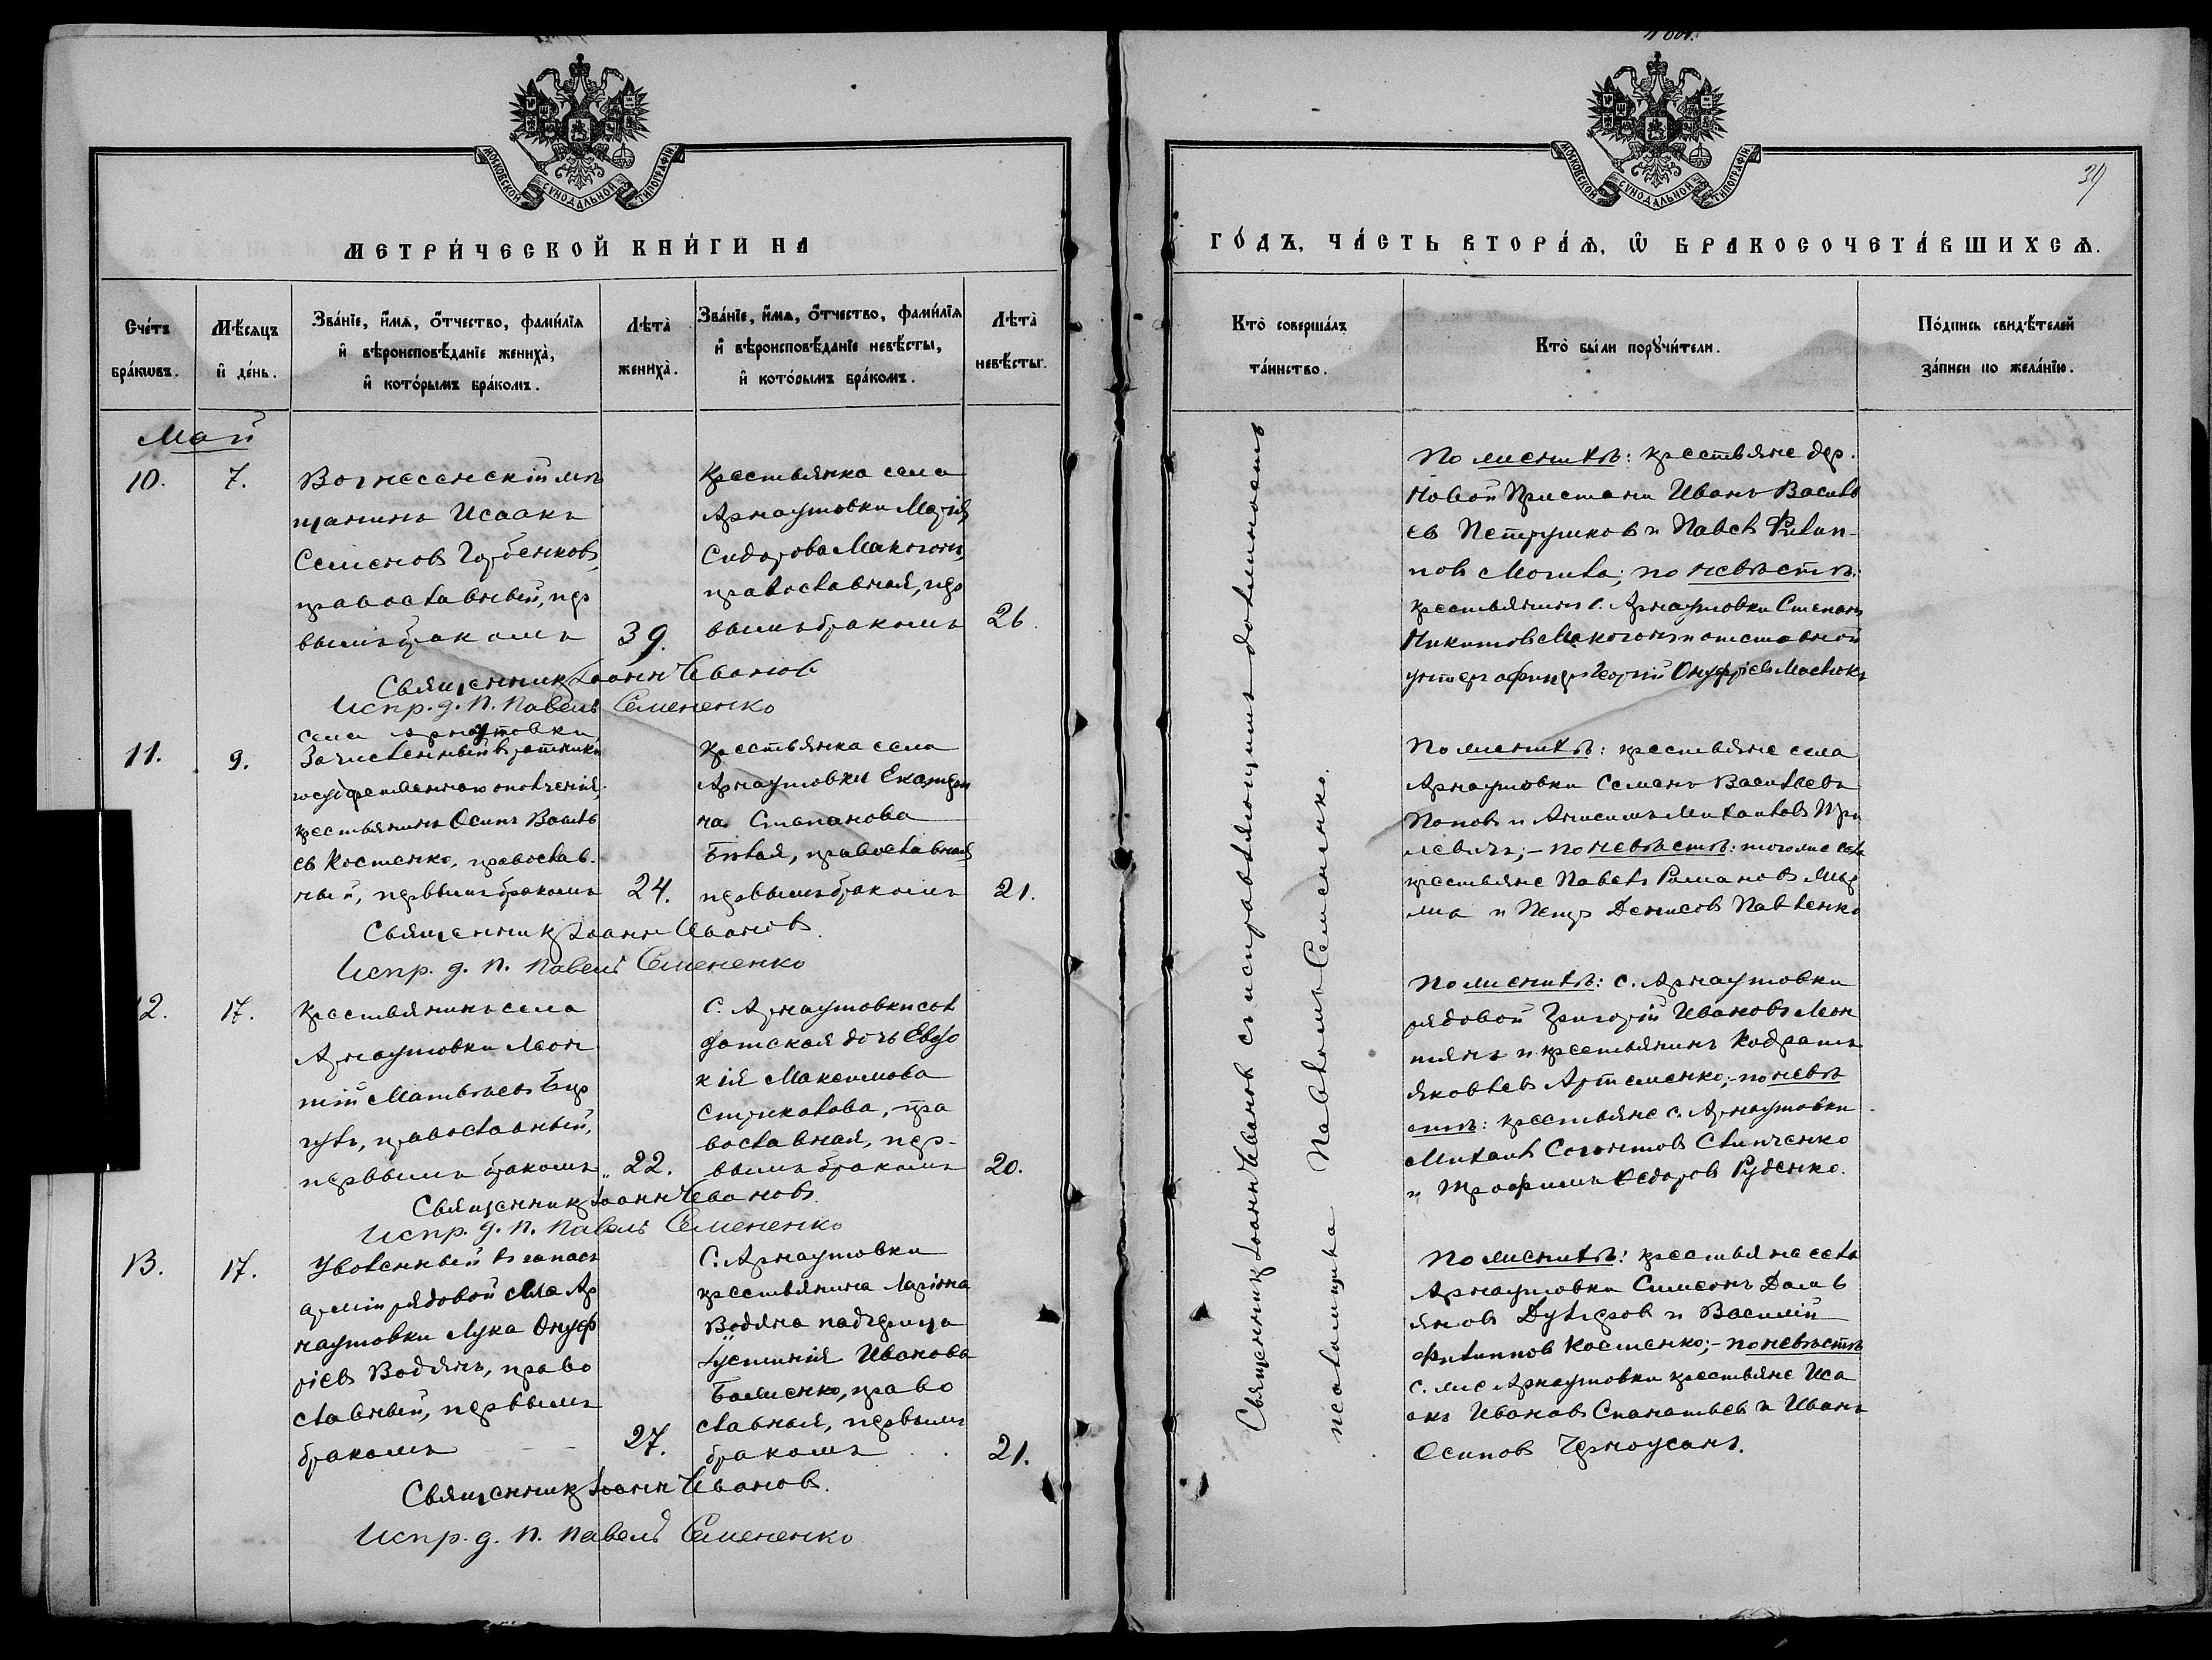 МОСКОВСКОЙ СѴНОДАЛЬНОЙ ТИПОГРАФІИ.
МЕТРИ́ЧЕСКОЙ КНИ́ГИ НА
Сче́тъ бра́кѡвъ.
Мѣ́сяцъ и҆ де́нь.
Зва́нїе, и҆́мѧ, ѻ҆́тчество, фами́лїѧ
и҆ вѣроисповѣ́данїе жениха̀,
и҆ кото́рымъ бра́комъ.
Лѣта̀ жениха̀.
Зва́нїе, и҆́мѧ, ѻ҆́тчество, фами́лїѧ
и҆ вѣроисповѣ́данїе невѣ́сты,
и҆ кото́рымъ бра́комъ.
Лѣта̀ невѣ́сты.
Май
10.
7.
Вознесенскій мѣ
щанинъ Исаакъ
Семеновъ Горбенковъ,
православный, пер
вымъ бракомъ
39.
Крестьянка села
Арнаутовки Марія
Сидорова Макогонъ,
православная, пер
вымъ бракомъ
26.
Священникъ Іоаннъ Ивановъ
Испр. д. п. Павелъ Семененко
11.
9.
села Арнаутовки
Зачисленный въ ратники
государственнаго ополченія,
крестьянинъ Осипъ Василь
евъ Костенко, православ
ный, первымъ бракомъ
24.
Крестьянка села
Арнаутовки Екатери
на Степанова
Бѣлая, православная
первымъ бракомъ
21.
Священникъ Іоаннъ Ивановъ.
Испр. д. п. Павелъ Семененко
12.
17.
Крестьянинъ села
Арнаутовки Леон
тій Матвѣевъ
православный,
первымъ бракомъ
22.
С. Арнаутовки сол
датская дочь Евдо
кія Максимова
Стрикалова, пра
вославная, пер-
вымъ бракомъ
20.
Священникъ Іоаннъ Ивановъ.
Испр. д. п. Павелъ Семененко
13.
17.
Уволенный въ запасъ
арміи рядовой села Ар
наутовки Лука Онуф
ріевъ Водянъ, право
славный, первымъ
бракомъ
27.
С. Арнаутовки
крестьянина Ларіона
Водяна падчерица
Іустинія Иванова
Баличенко, право
славная, первымъ
бракомъ
21.
Священникъ Іоаннъ Ивановъ.
Испр. д. п. Павелъ Семененко
МОСКОВСКОЙ СѴНОДАЛЬНОЙ ТИПОГРАФІИ.
39
ГО́ДЪ, ЧА́СТЬ ВТОРА́Ѧ, Ѡ҆ БРАКОСОЧЕТА́ВШИХСѦ.
Кто̀ соверша́лъ та́инство.
Кто̀ бы́ли порꙋчи́тели.
По́дпись свидѣ́телей за́писи по жела́нїю.
Священникъ Іоаннъ Ивановъ съ исправляющимъ должность
псаломщика Павломъ Семененко.
По женихѣ: крестьяне дер.
Новой Пристани Иванъ Василь
евъ Петрушковъ и Павелъ Филип-
повъ Могила; по невѣстѣ:
крестьянинъ с. Арнаутовки Степанъ
Никитовъ Макогонъ и отставной
унтеръ офицеръ Георгій Онуфріевъ
По женихѣ: крестьяне села
Арнаутовки Семенъ Васильевъ
Поповъ и Анисимъ Михаиловъ
по невѣстѣ: того же села
крестьяне Павелъ Романовъ
и Петръ Денисовъ Павленко
По женихѣ: с. Арнаутовки
рядовой Григорій Ивановъ Леон
тянъ и крестьянинъ Кодратъ
Яковлевъ Артеменко; по невѣ
стѣ: крестьяне с. Арнаутовки
Михаилъ Созонтовъ Слипченко
и Трофимъ Ѳедоровъ Руденко.
По женихѣ: крестьяне села
Арнаутовки Симеонъ Дамь
яновъ Дулдеровъ и Василій
Филипповъ Костенко; - по невѣстѣ
с. же Арнаутовки крестьяне Иса
акъ Ивановъ и Иванъ
Осиповъ Черноусанъ.